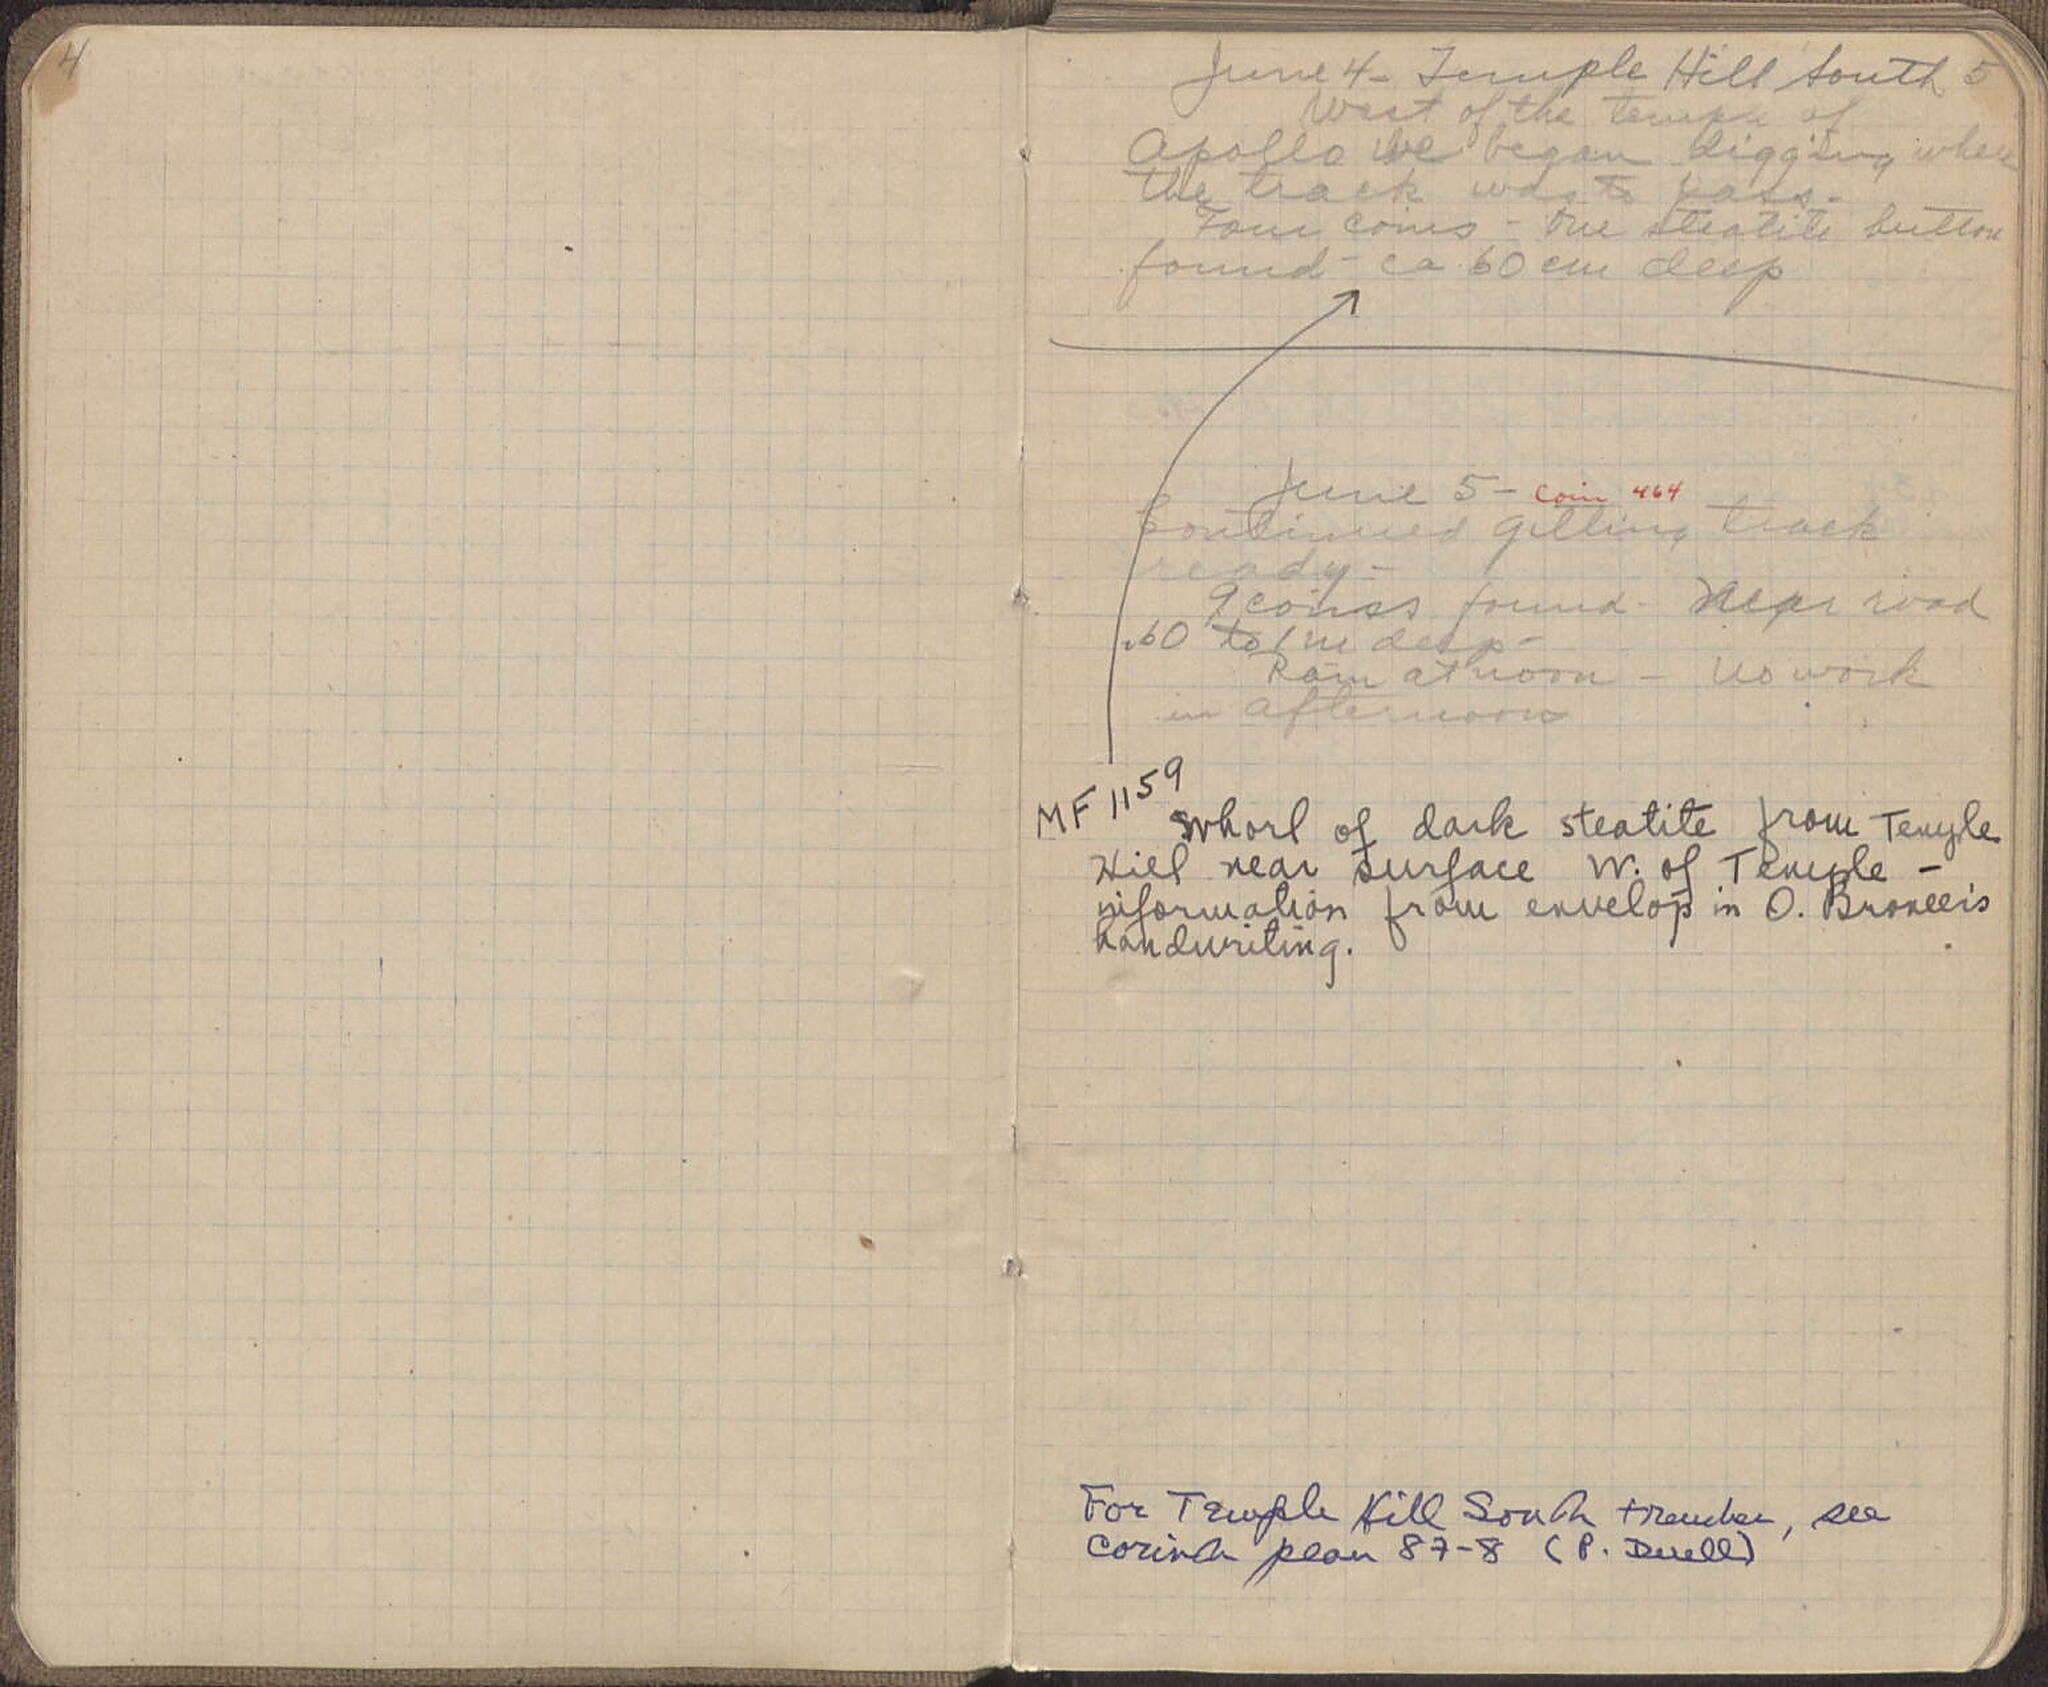 4
June 4 - Temple Hill South 5
West of the temple of
Apollo we began digging where
the track was to pass -
Four coins - One steatite button
found - ca 60 cm deep
June 5 - Coin 464
Continued getting track
ready -
9 coins found - Near road
.60 to 1 m deep -
Rain at noon - no work
in afternoon
MF 1159
Whorl of dark steatite from Temple
Hill near surface W. of Temple -
information from envelop in O. Broneer's
handwriting.
For Temple Hill South trenches, see
Corinth plan 87-8 (P. Duell)